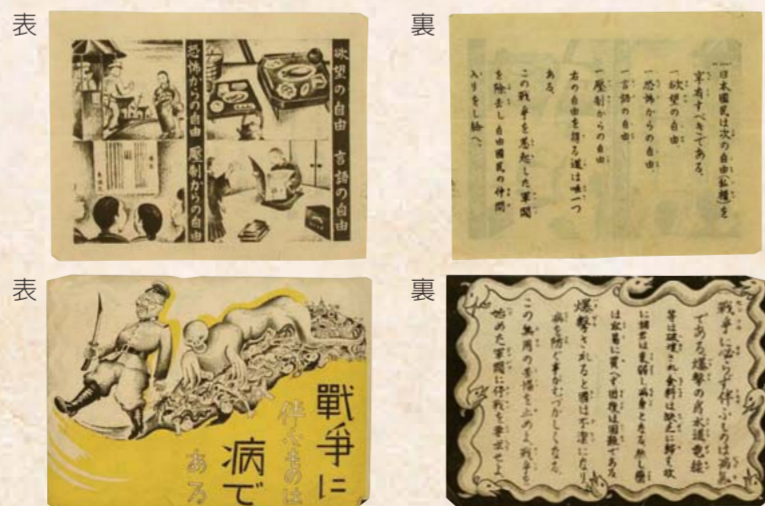 表
欲望の自由
言語の自由
恐怖からの自由
壓制からの自由
裏
一日本國民は次の自由(私權)を
享有すべきである、
一欲望の自由
一恐怖からの自由
一言語の自由
一壓制からの自由
右の自由を得る道は唯一つ
ある、
この戰爭を惹起した軍閥
を除去し自由國民の仲間
入りをし給へ、
表
戰爭に
伴ふものは
病で
ある
裏
戰爭に必らず伴ふものは病氣
である爆擊の爲水道電線
等は破壊され食料は缺乏に歸す故
に諸君は衰弱し病身となる然し醫
は容易に買へず回復は困難である
爆擊されると國は不潔になり、
病を防ぐ事がむつかしくなる、
この無用の苦惱を止めよ戰爭を
始めた軍閥に停戰を要求せよ